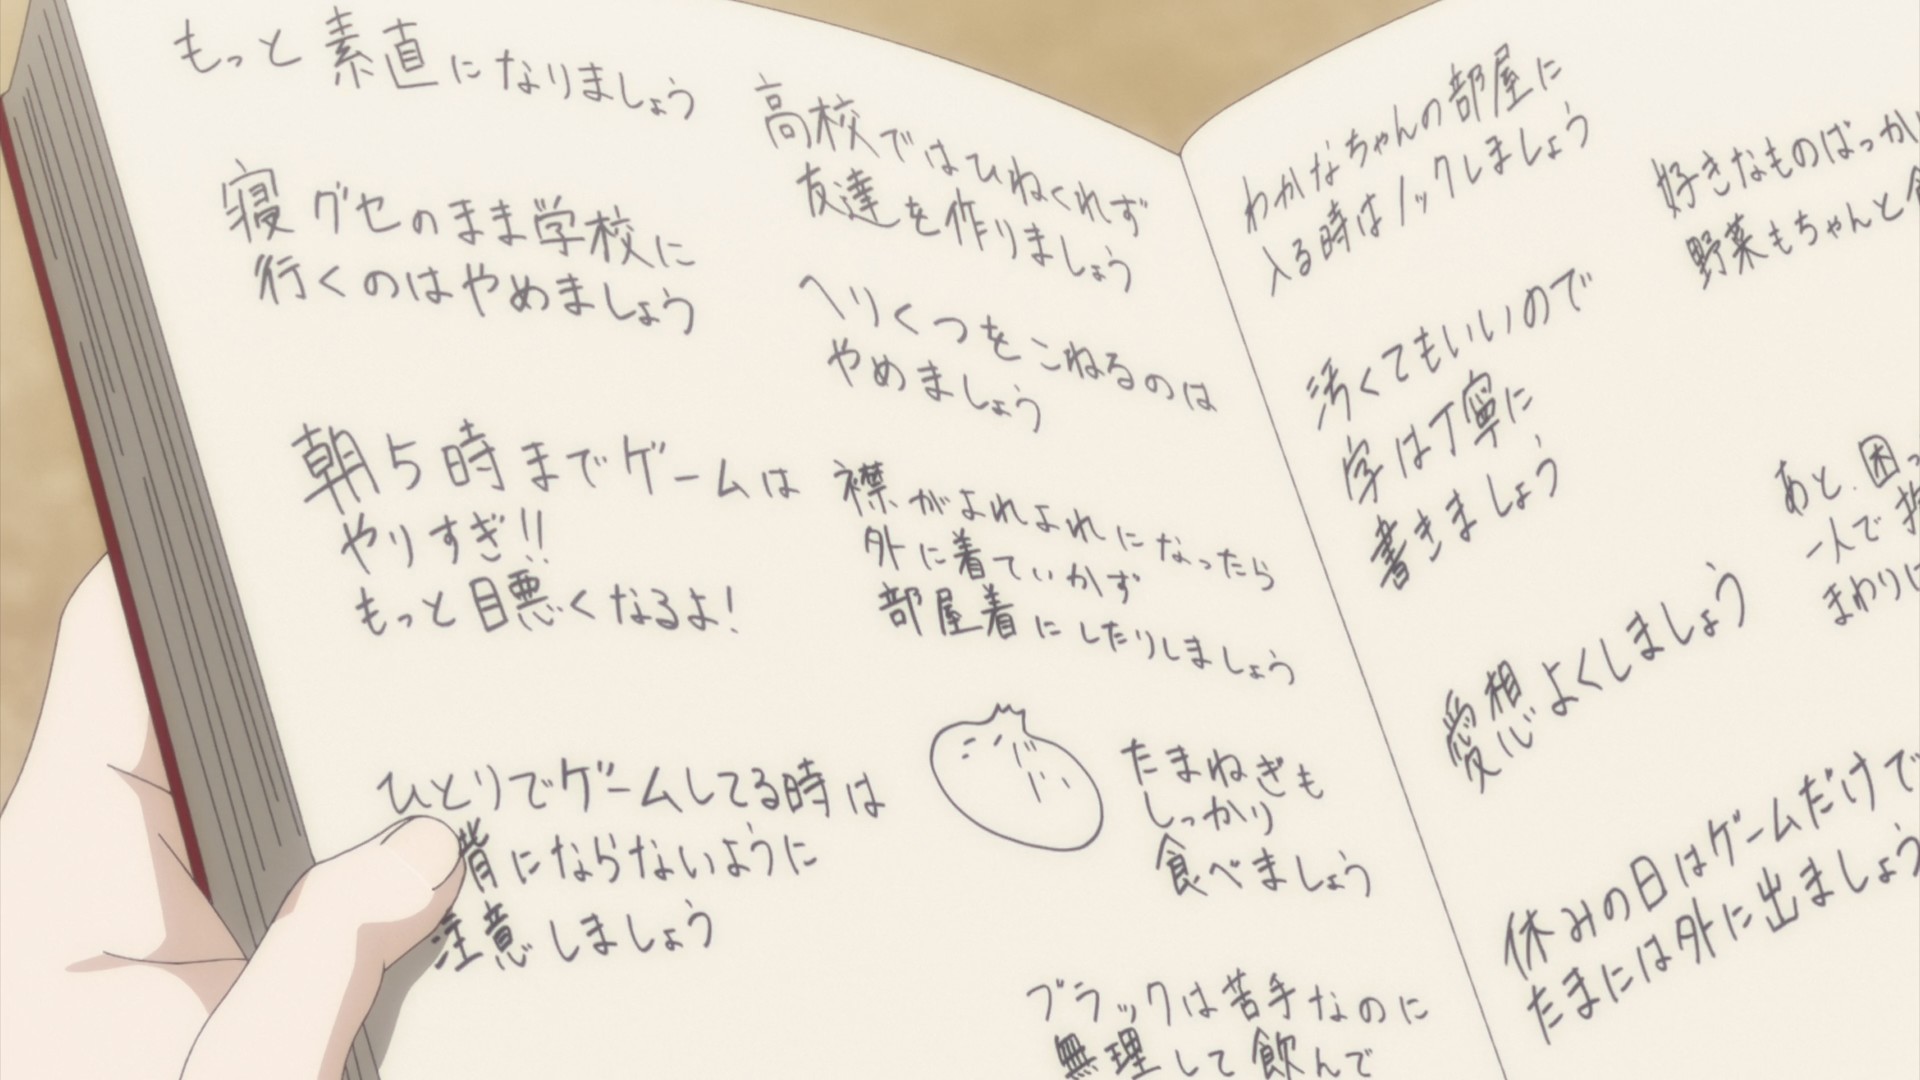 もっと素直になりましょう
寝グセのまま学校に
行くのはやめましょう
朝5時までゲームは
やりすぎ!!
もっと目悪くなるよ!
ひとりでゲームしてる時は
背にならないように
注意しましょう
高校ではひねくれず
友達を作りましょう
へりくつをこねるのは
やめましょう
襟がよれよれになったら
外に着ていかず
部屋着にしたりしましょう
たまねぎも
しっかり
食べましょう
ブラックは苦手なのに
無理して飲んで
わかなちゃんの部屋に
入る時はノックしましょう
汚くてもいいので
字は丁寧に
書きましょう
愛想よくしましょう
休みの日はゲームだけで
たまには外に出ましょう
好きなものばっか
野菜もちゃんと
あと、困っ
一人で
まわりに